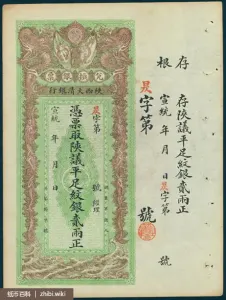 存根
存陝議平足紋銀貳兩正
宣統 年 月 日昃字第 號
昃字第 號
陝西大清銀行
昃字第 號 經理
憑票取陝議平足紋銀貳兩正
宣統 年 月 日
纸币百科 | zhibi.wiki